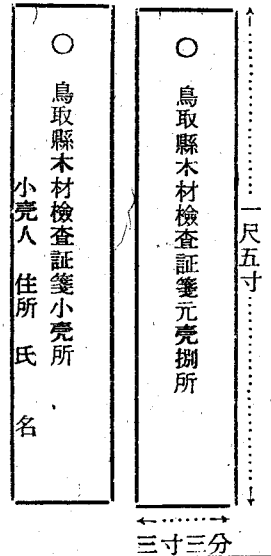 一尺五寸
○ 鳥取縣木材檢査証箋元売捌所
三寸三分
○ 鳥取縣木材檢査証箋小売所
小売人 住所 氏 名